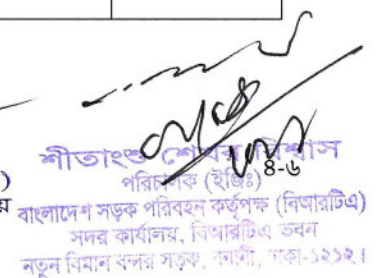 ৪-৬
)
শীতাংশু শেখর বিশ্বাস
পরিচালক (ইঞ্জিঃ)
য়
বাংলাদেশ সড়ক পরিবহন কর্তৃপক্ষ (বিআরটিএ)
সদর কার্যালয়, বিআরটিএ ভবন
নতুন বিমান বন্দর সড়ক, বনানী, ঢাকা-১২১২।